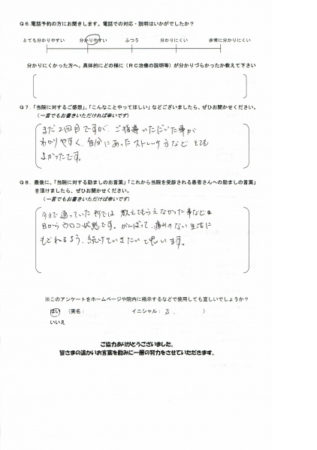 Q6.電話予約の方にお聞きします。電話での対応・説明はいかがでしたか?
とても分かりやすい 分かりやすい ふつう 分かりにくい 非常に分かりにくい
分かりにくかった方へ。具体的にどの様に(RC治療の説明等)が分かりづらかったか教えて下さい
Q7.「当院に対するご感想」、「こんなことやってほしい」などございましたら、ぜひお聞かせください。
(一言でもお書きいただければ幸いです)
まだ2回目ですが、ご指導いただいた事が
わかりやすく、自分にあったストレッチなど とても
よかったです。
Q8.最後に、「当院に対する励ましのお言葉」「これから当院を受診される患者さんへの励ましの言葉」
を頂けましたら、ぜひお聞かせください。
(一言でもお書きいただければ幸いです)
今まで通っていた所では 教えてもらえなかった事など
目からウロコ状態です。がんばって、痛みのない生活に
もどれるよう、続けていきたいと思います。
※このアンケートをホームページや院内に掲示するなどで使用しても宜しいでしょうか?
はい (実名: イニシャル: )
いいえ
ご協力ありがとうございました。
皆さまの温かいお言葉を励みに一層の努力をさせていただきます。